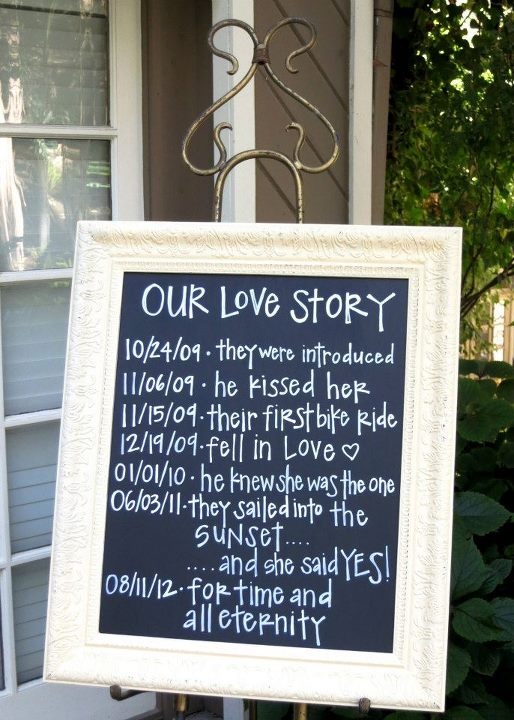 OUR LOVE STORY
10/24/09 · they were introduced
11/06/09 · he kissed her
11/15/09 · their first bike ride
12/19/09 · fell in Love ♡
01/01/10 · he knew she was the one
06/03/11 · they sailed into the
SUNSET....
....and she said YES!
08/11/12 · for time and
all eternity